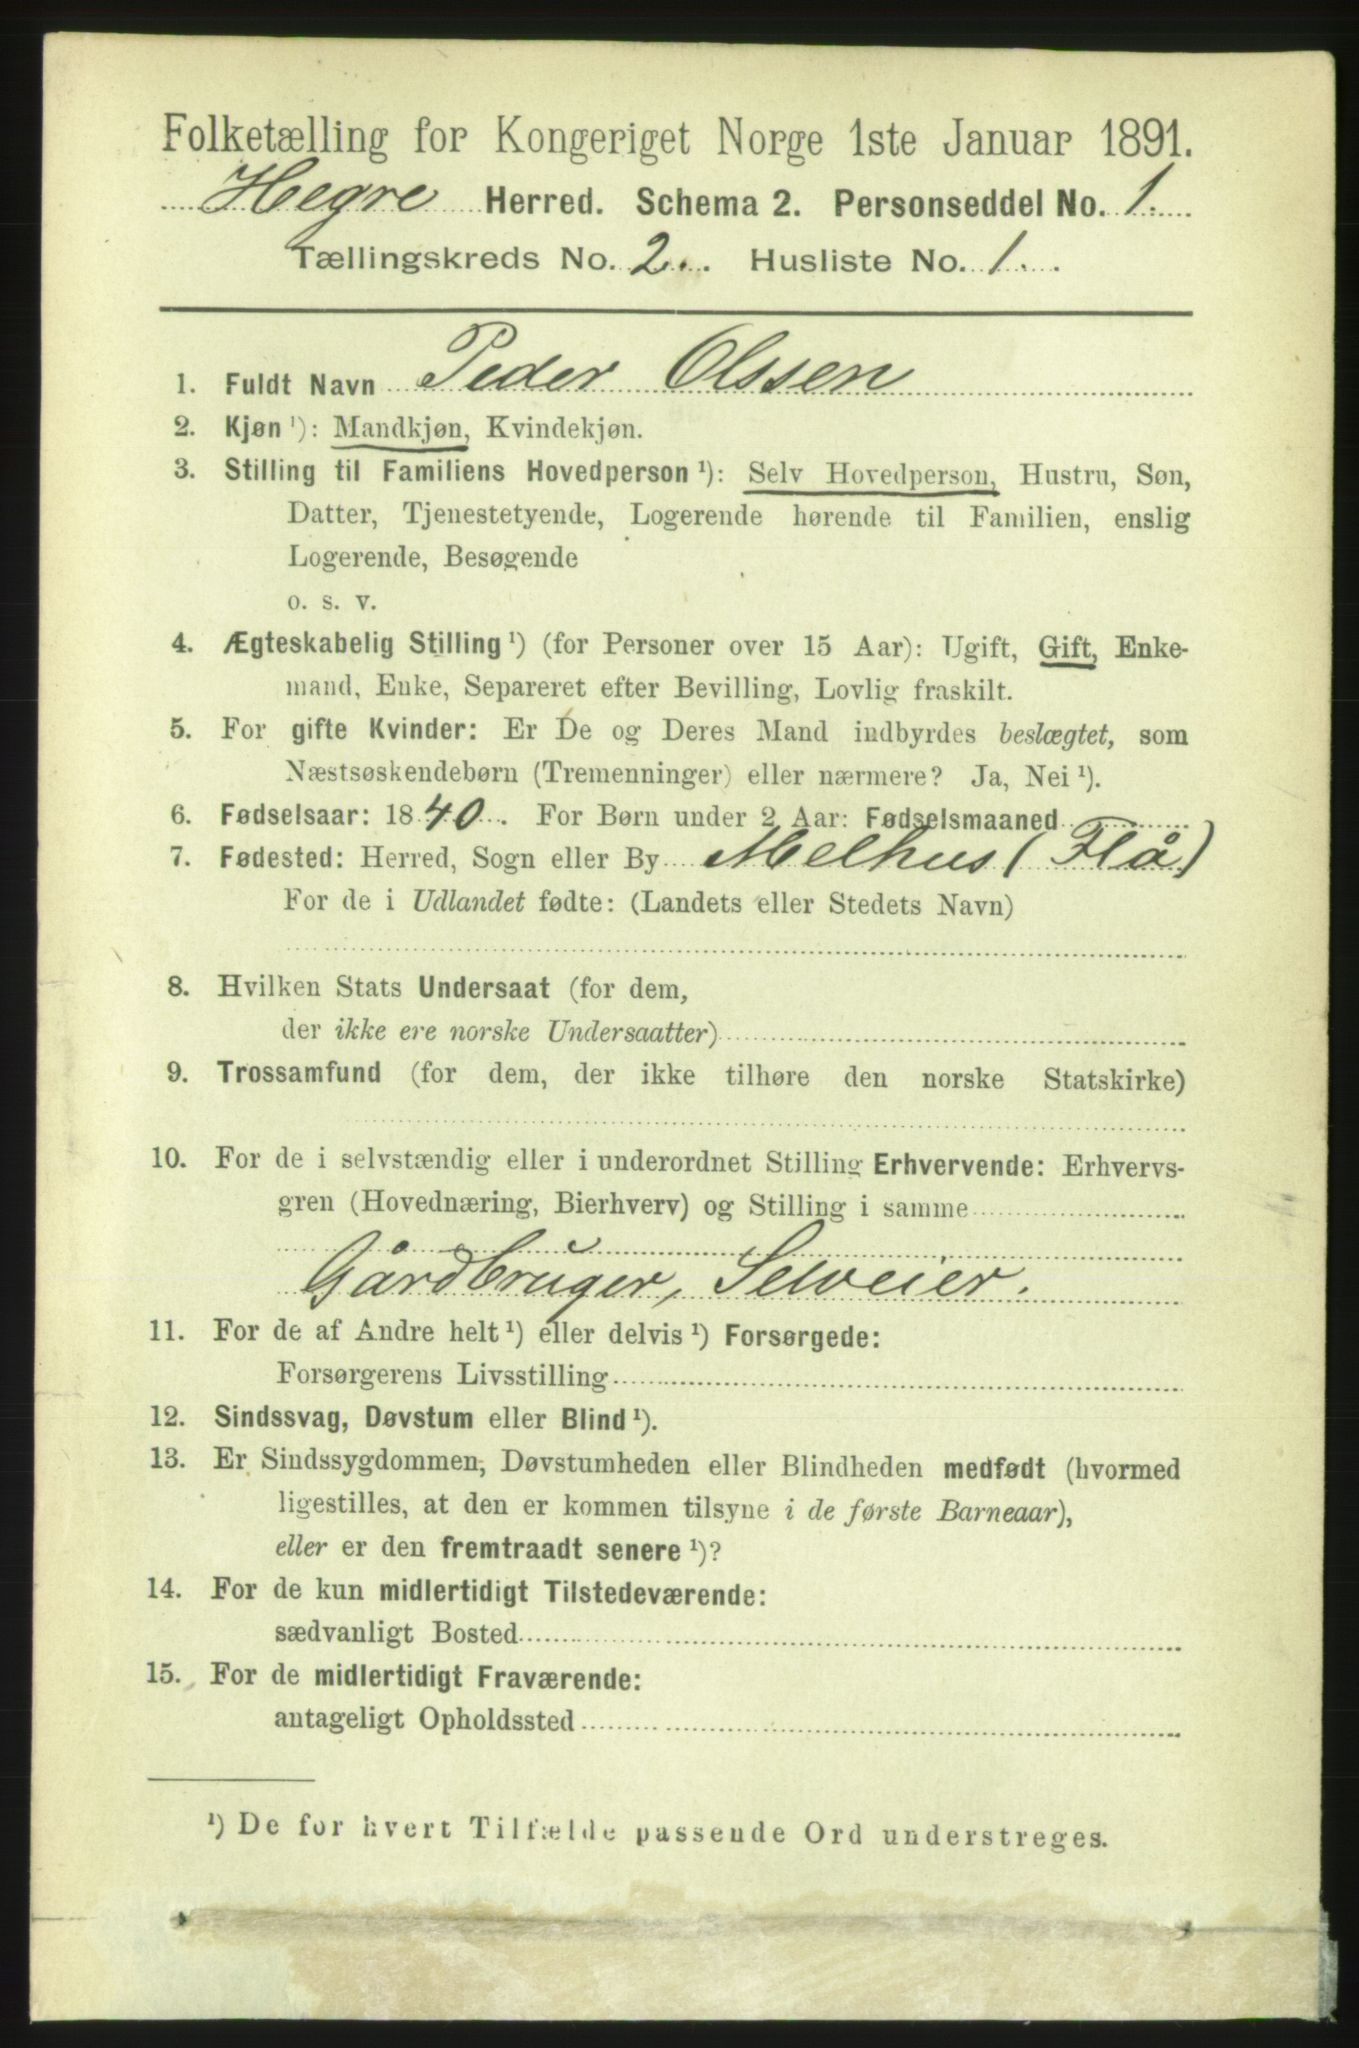 Folketælling for Kongeriget Norge 1ste Januar 1891.
Hegre Herred. Schema 2. Personseddel No. 1.
Tællingskreds No. 2. Husliste No. 1.
1. Fuldt Navn Peder Olssen
2. Kjøn ¹): Mandkjøn, Kvindekjøn.
3. Stilling til Familiens Hovedperson ¹): Selv Hovedperson, Hustru, Søn,
Datter, Tjenestetyende, Logerende hørende til Familien, enslig
Logerende, Besøgende
o. s. v.
4. Ægteskabelig Stilling ¹) (for Personer over 15 Aar): Ugift, Gift, Enke-
mand, Enke, Separeret efter Bevilling, Lovlig fraskilt.
5. For gifte Kvinder: Er De og Deres Mand indbyrdes beslægtet, som
Næstsøskendebørn (Tremenninger) eller nærmere? Ja, Nei ¹).
6. Fødselsaar: 1840. For Børn under 2 Aar: Fødselsmaaned
7. Fødested: Herred, Sogn eller By Melhus (Flå)
For de i Udlandet fødte: (Landets eller Stedets Navn)
8. Hvilken Stats Undersaat (for dem,
der ikke ere norske Undersaatter)
9. Trossamfund (for dem, der ikke tilhøre den norske Statskirke)
10. For de i selvstændig eller i underordnet Stilling Erhvervende: Erhvervs-
gren (Hovednæring, Bierhverv) og Stilling i samme
Gårdbruger, Selveier.
11. For de af Andre helt ¹) eller delvis ¹) Forsørgede:
Forsørgerens Livsstilling
12. Sindssvag, Døvstum eller Blind ¹).
13. Er Sindssygdommen, Døvstumheden eller Blindheden medfødt (hvormed
ligestilles, at den er kommen tilsyne i de første Barneaar),
eller er den fremtraadt senere ¹)?
14. For de kun midlertidigt Tilstedeværende:
sædvanligt Bosted
15. For de midlertidigt Fraværende:
antageligt Opholdssted
¹) De for hvert Tilfælde passende Ord understreges.